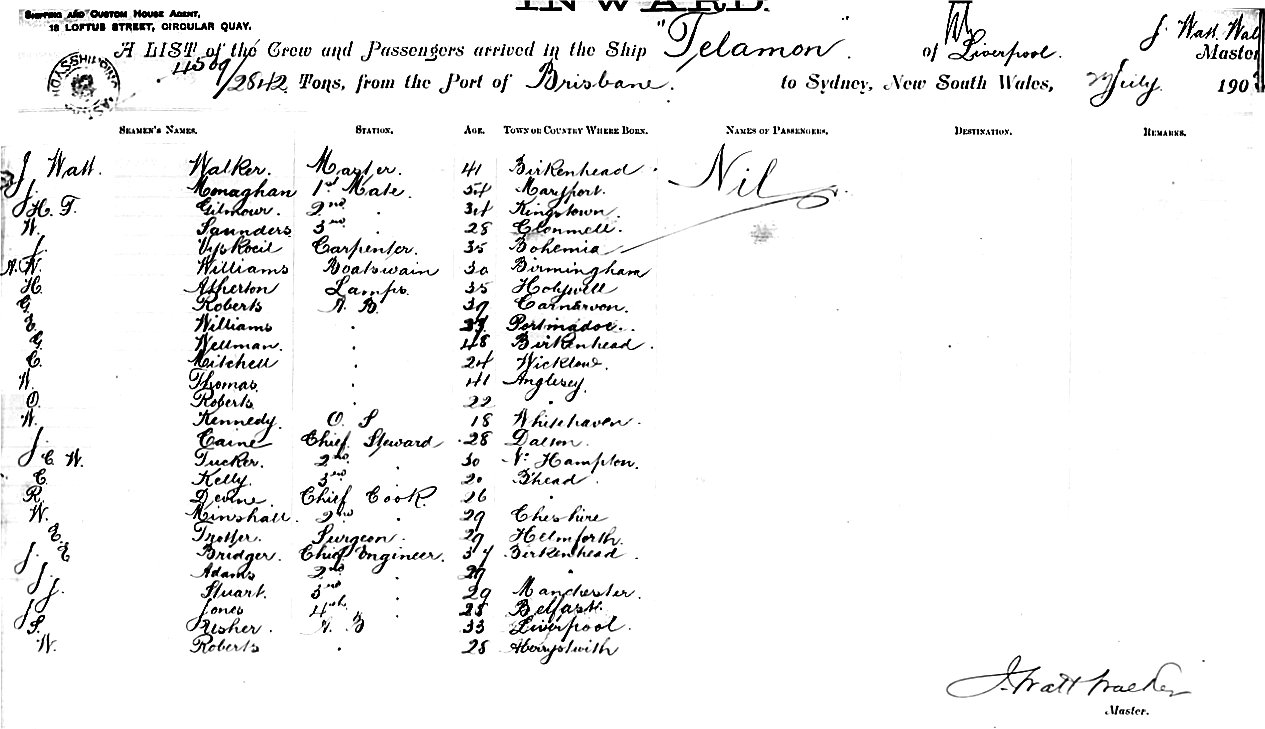 SHIPPING AND CUSTOM HOUSE AGENT,
18 LOFTUS STREET, CIRCULAR QUAY.
INWARD.
A LIST of the Crew and Passengers arrived in the Ship "Telamon" of Liverpool. J. Watt Wal Master
4509/2842 Tons, from the Port of Brisbane. to Sydney, New South Wales, July 190
SEAMEN'S NAMES. STATION. AGE. TOWN OR COUNTRY WHERE BORN. NAMES OF PASSENGERS, DESTINATION. REMARKS.
J. Watt. Walker. Master. 41 Birkenhead. Nil
J. Monaghan 1st Mate. 54 Maryport.
H. T. Gilmour. 2nd . 34 Kingstown.
W. Saunders 3rd . 28 Clonmell.
J. Vyskocil Carpenter. 35 Bohemia
A. W. Williams Boatswain 30 Birmingham
H. Atherton Lamps. 35 Holywell
G. Roberts A. B. 37 Carnarvon.
E. Williams . Portmadoc.
G. Wellman. . 48 Birkenhead.
C. Mitchell . 24 Wicklow.
W. Thomas. . 41 Anglesey.
O. Roberts . 22 "
W. Kennedy. O. S 18 Whitehaven.
J. Caine Chief Steward 28 Dalton.
J. C. W. Tucker. 2nd . 30 N. Hampton.
C. Kelly. 3rd . 20 B'head .
R. Devine Chief Cook. 26 "
W. Minshall. 2nd . 29 Cheshire
E. Trotter. Surgeon. 29 Helmforth.
J. E. Bridger. Chief Engineer. 37 Birkenhead.
J. Adams 2nd . 27 "
J. Stuart. 3rd . 29 Manchester.
J. Jones 4th . 28 Belfast.
P. Fisher. A. B 33 Liverpool.
W. Roberts . 28 Aberystwith
J. Watt Walker
Master.